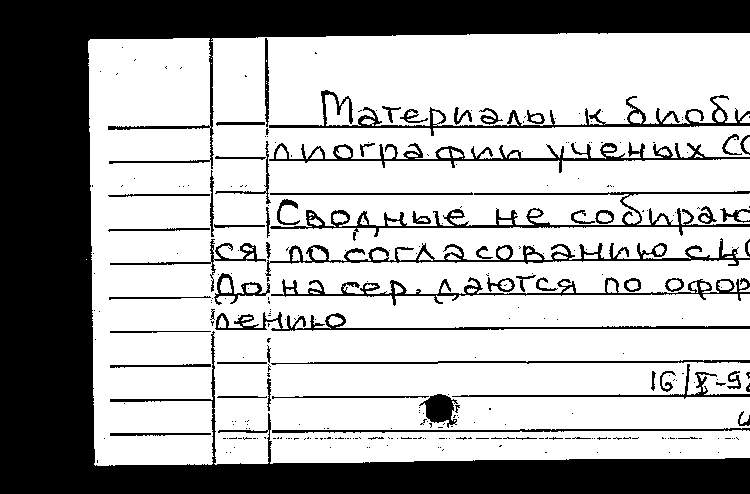 Материалы к биоби
лиографии ученых СС
Сводные не собираю
ся по согласованию с ЦС
До на сер. даются по офор
лению
16/X-98